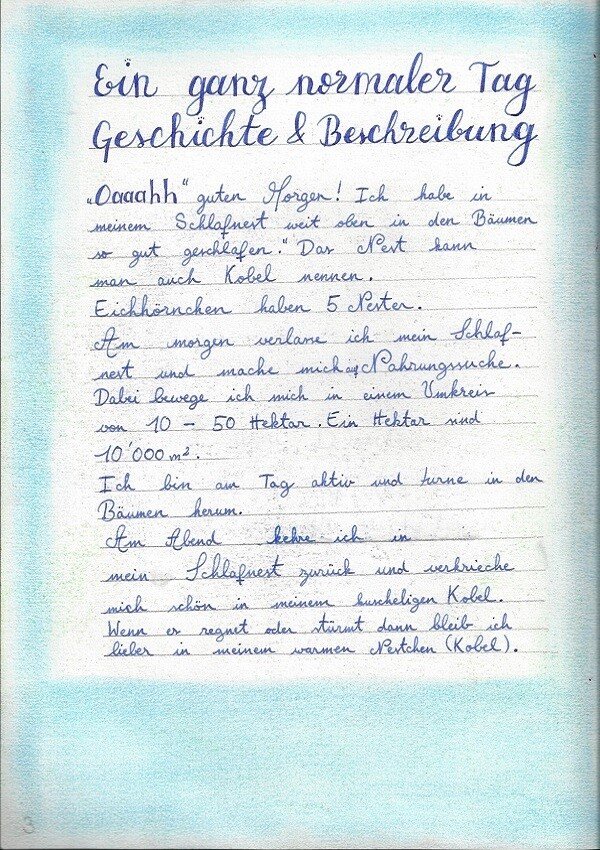 Ein ganz normaler Tag
Geschichte & Beschreibung
„Oaaahh“ guten Morgen! Ich habe in
meinem Schlafnest weit oben in den Bäumen
so gut geschlafen." Das Nest kann
man auch Kobel nennen.
Eichhörnchen haben 5 Nester.
Am morgen verlasse ich mein Schlaf-
nest und mache mich auf Nahrungssuche.
Dabei bewege ich mich in einem Umkreis
von 10 – 50 Hektar. Ein Hektar sind
10'000 m².
Ich bin am Tag aktiv und turne in den
Bäumen herum.
Am Abend kehre ich in
mein Schlafnest zurück und verkrieche
mich schön in meinem kuscheligen Kobel.
Wenn es regnet oder stürmt dann bleib ich
lieber in meinem warmen Nestchen (Kobel).
3